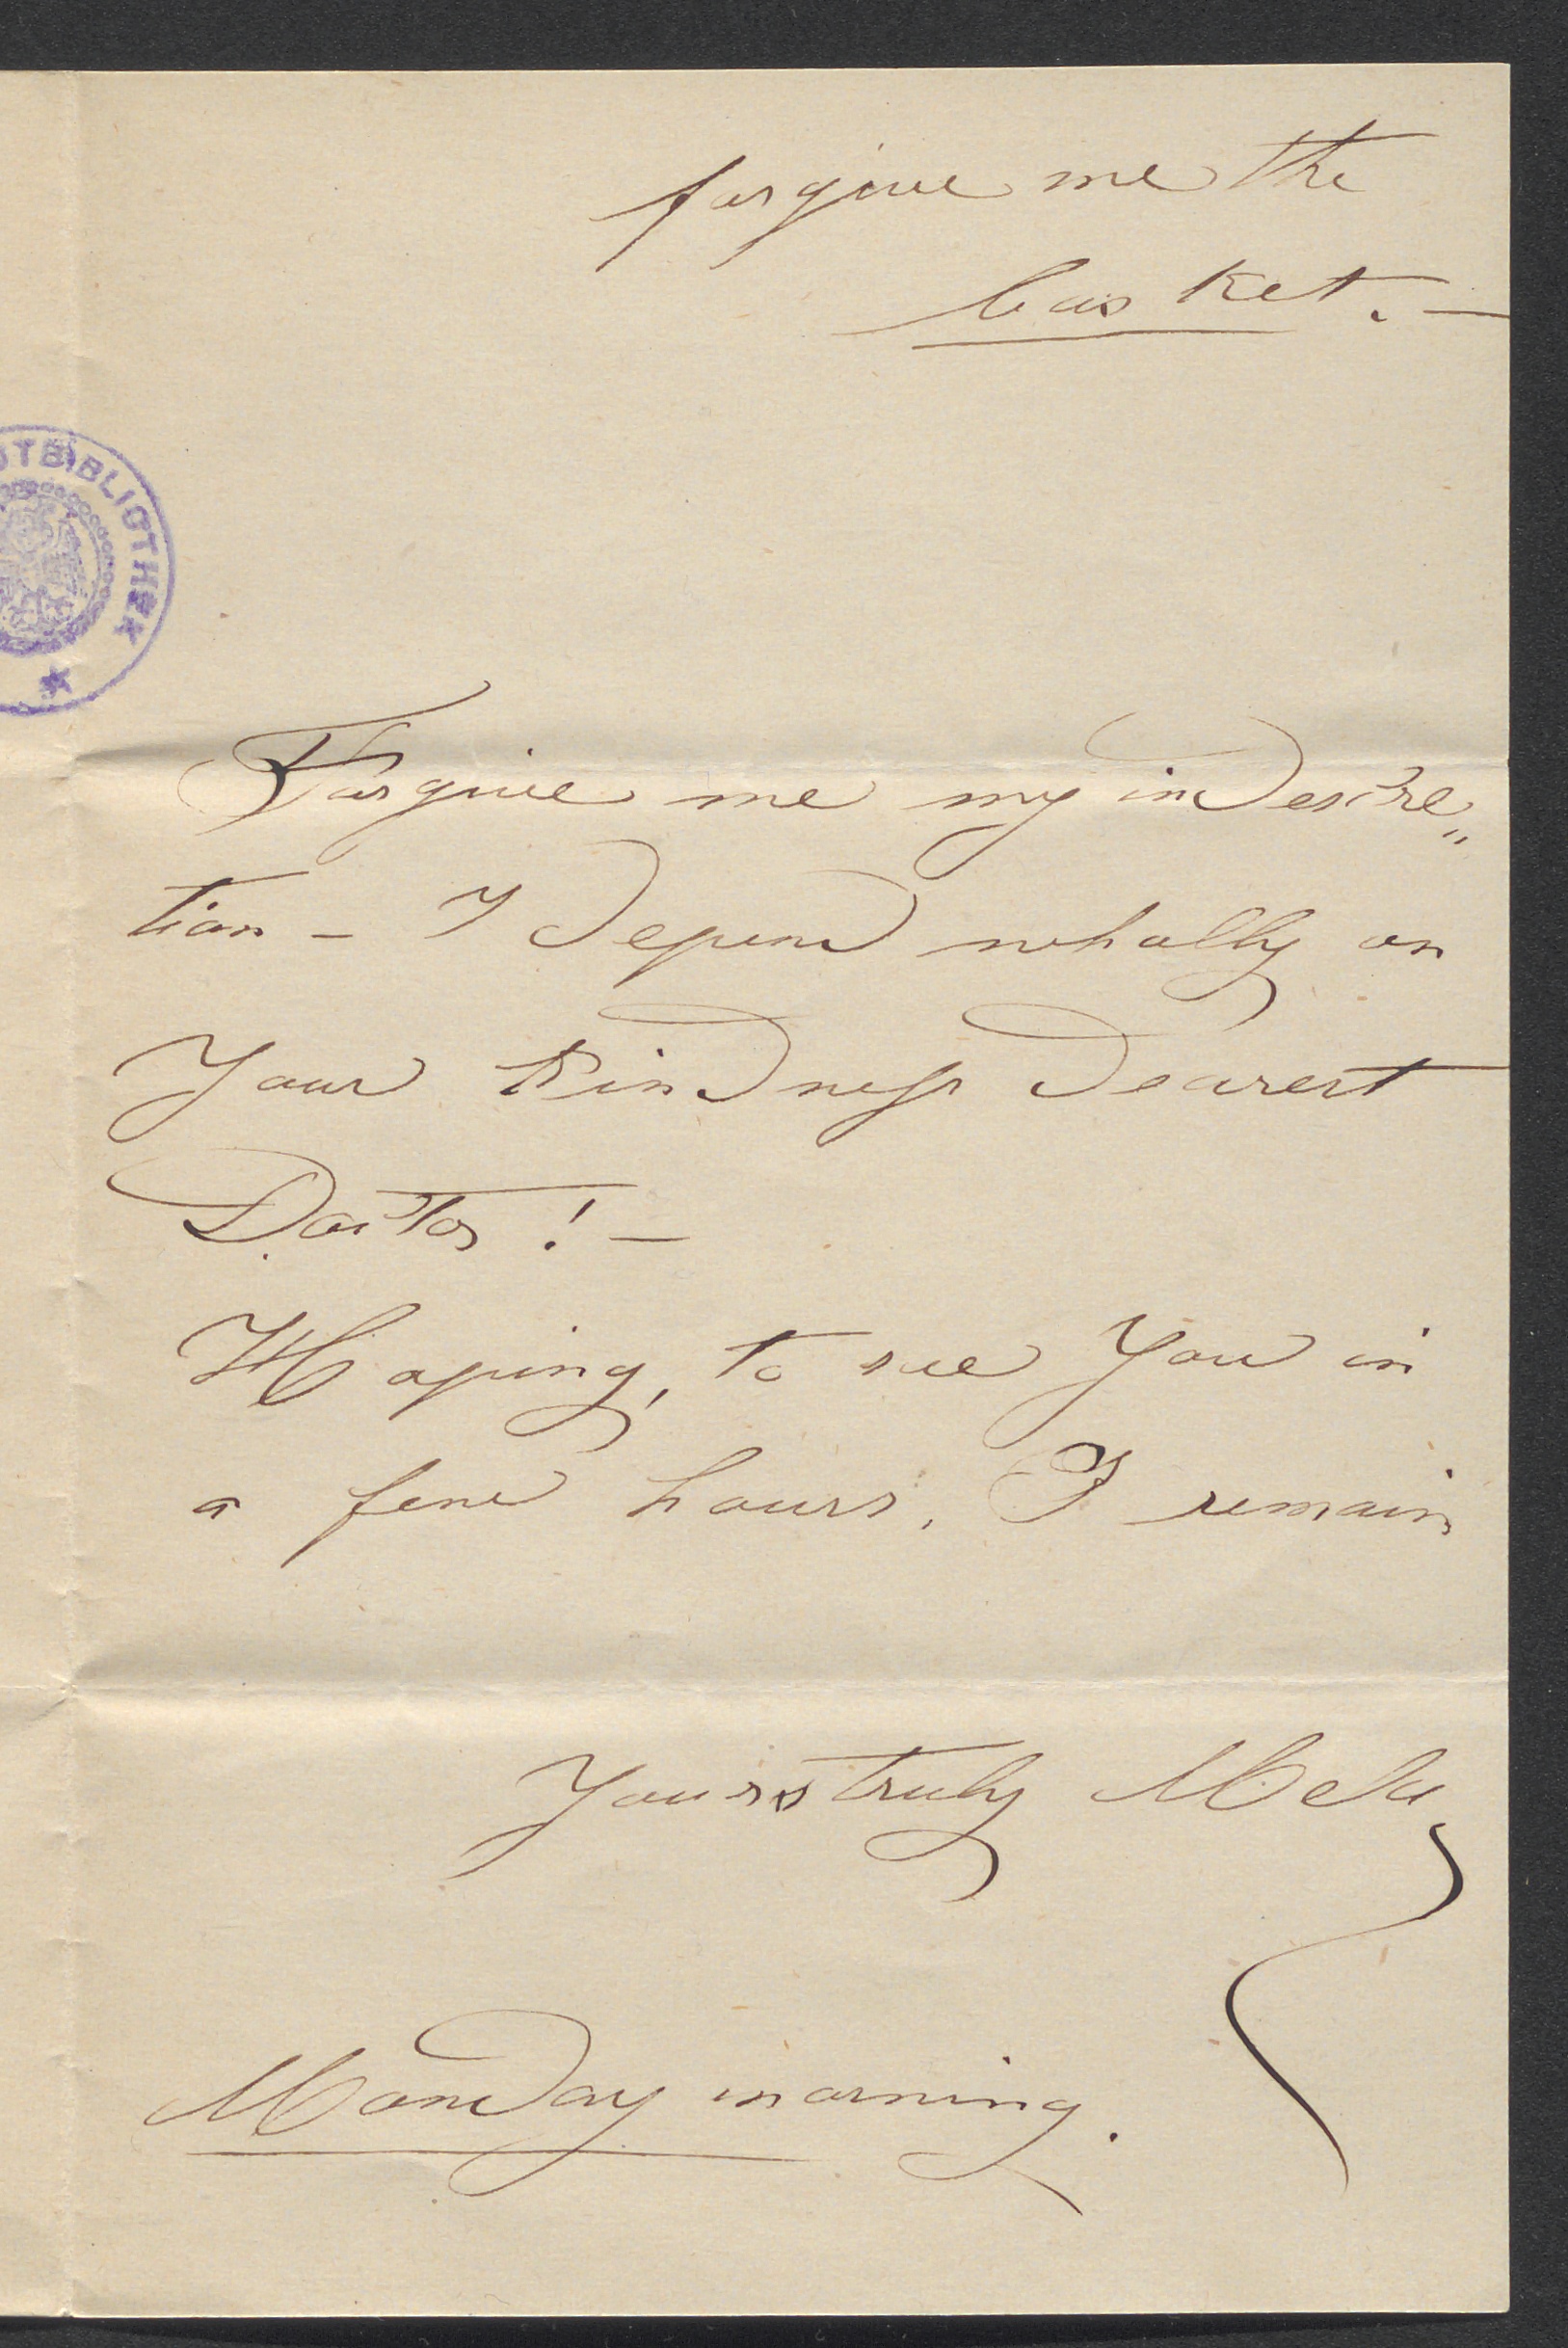 forgive me the
basket. —
OTBIBLIOTHEK
Forgive me my indescre„
tion – I depend wholly on
Your Kindness dearest
Doctor! –
Hoping, to see You in
a few hours. I remain
Yours truly Mela
Monday morning.